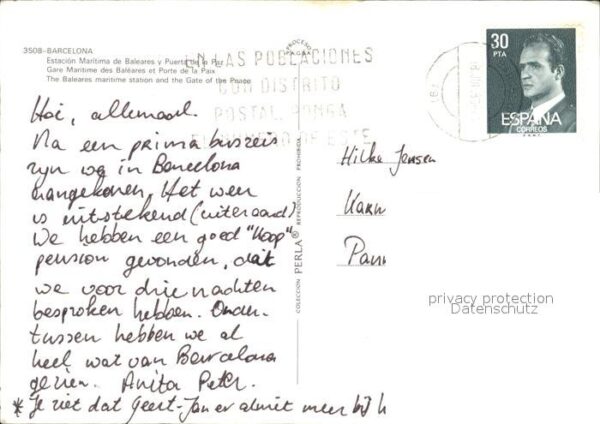 3508-BARCELONA
Estación Marítima de Baleares y Puerta de la Paz
Gare Maritime des Baléares et Porte de la Paix
The Baleares maritime station and the Gate of the Peace
EN LAS POBLACIONES
CON DISTRITO
POSTAL, PONGA
EL NUMERO DE ESTE
30
PTA
ESPAÑA
CORREOS
Hoi, allemaal.
Na een prima busreis
zijn we in Barcelona
aangekomen. Het weer
is uitstekend (uiteraard)
We hebben een goed "koop"
pension gevonden, dat
we voor drie nachten
besproken hebben. Onder-
tussen hebben we al
heel wat van Barcelona
gezien. Anita Peter.
* Je ziet dat Geert-Jan er al niet meer bij h
COLECCION PERLA® REPRODUCCION PROHIBIDA
Hilke Jensen
privacy protection
Datenschutz